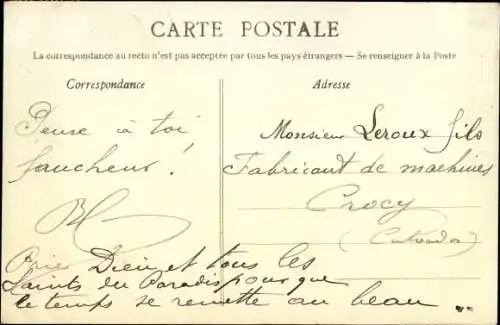 CARTE POSTALE
La correspondance au recto n'est pas acceptée par tous les pays étrangers — Se renseigner à la Poste
Correspondance
Pense à toi
faucheur !
Priez Dieu et tous les
Saints du Paradis pour que
le temps se remette au beau
Adresse
Monsieur Leroux fils
Fabricant de machines
Crocy
(Calvados)